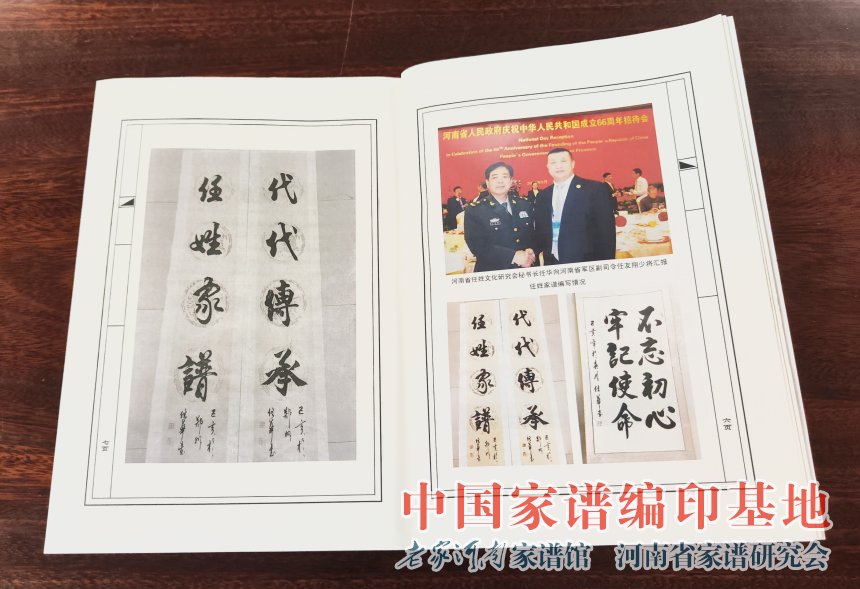 河南省人民政府庆祝中华人民共和国成立66周年招待会
National Day Reception
In Celebration of the 66th Anniversary of the Founding of the People's Republic of China
People's Government Province
河南省任姓文化研究会秘书长任华向河南省军区副司令任友翔少将汇报
任姓家谱编写情况
不忘初心
牢記使命
代代傳承
任姓家譜
六页
代代傳承
己亥於
鄭州
任華書
任姓家譜
己亥於
鄭州
任華書
七页
中国家谱编印基地
老家河南家谱馆 河南省家谱研究会